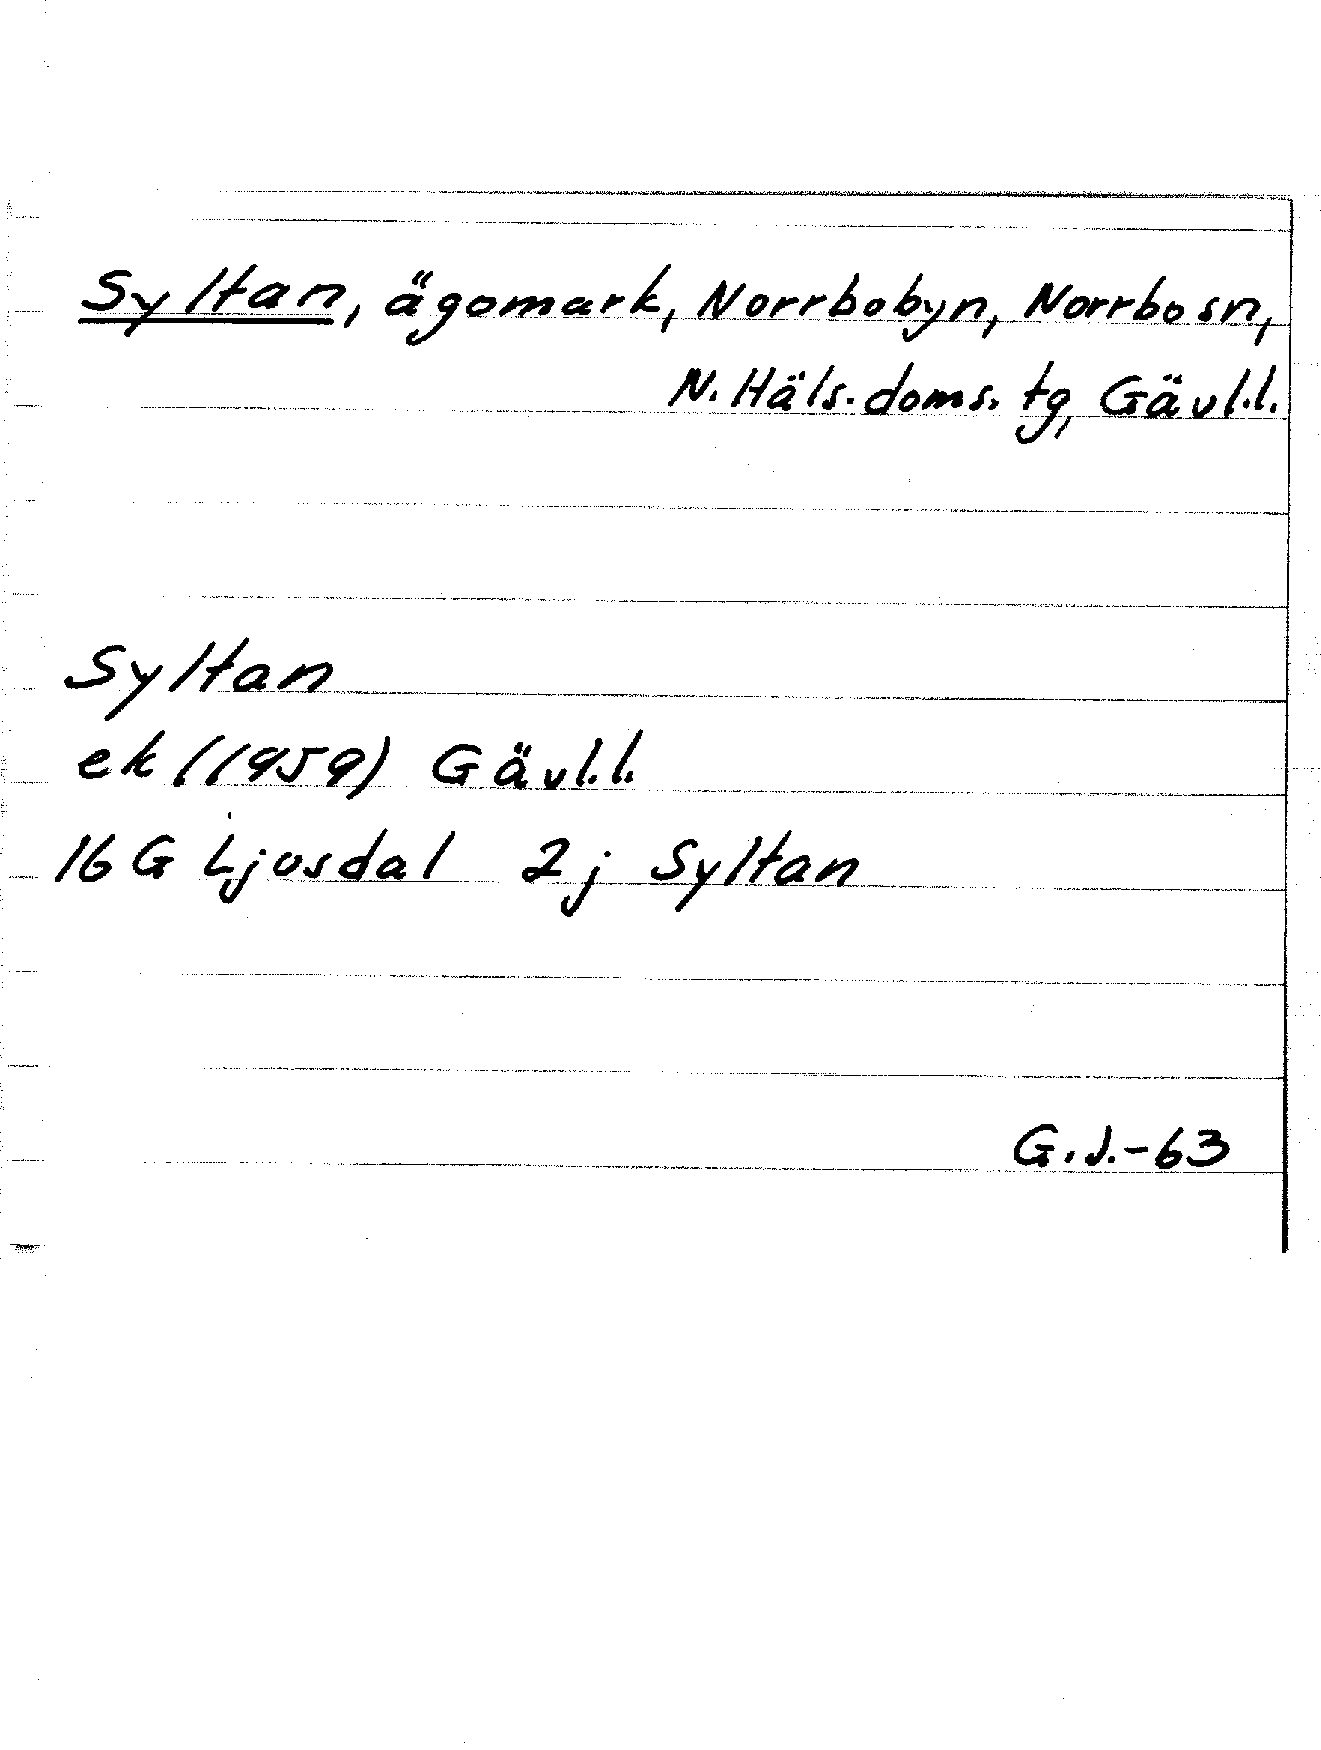 Syltan, ägomark, Norrbobyn, Norrbo sn,
N. Häls. doms. tg, Gävl.l.
Syltan
ek (1959) Gävl.l.
16 G Ljusdal 2 j Syltan
G.J.-63